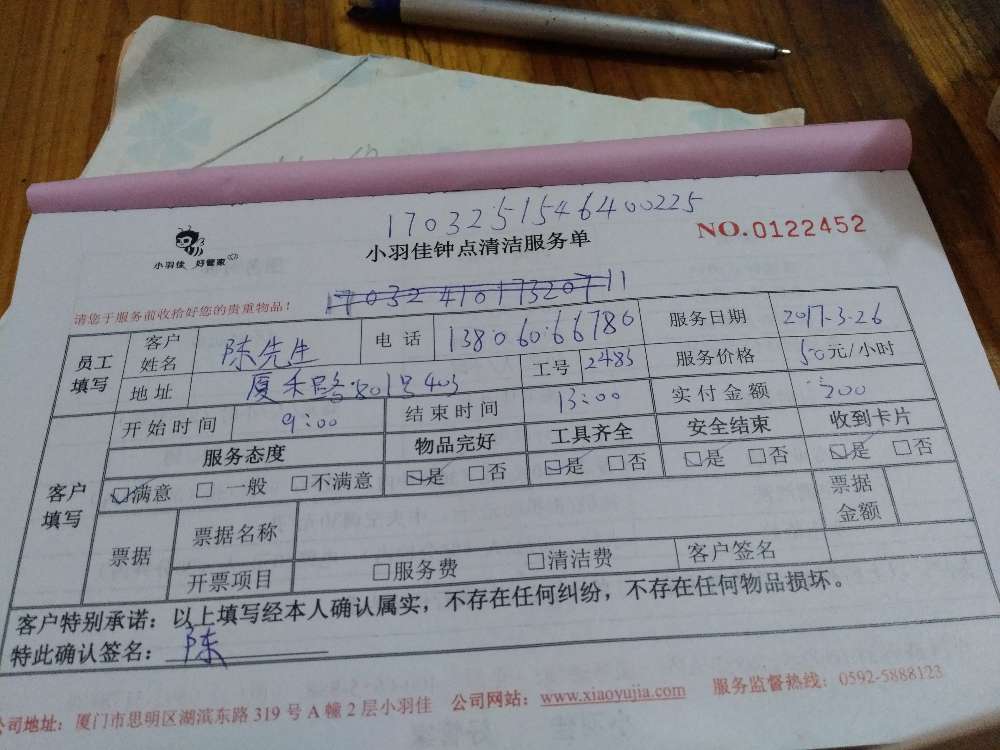 1703251546400225
小羽佳 好管家
小羽佳钟点清洁服务单
NO.0122452
请您于服务前收拾好您的贵重物品!
17032410173207 11
员工填写 客户姓名 陈先生 电话 13806066780 服务日期 2017.3.26
地址 厦禾路801号403 工号 2483 服务价格 50元/小时
客户填写 开始时间 9:00 结束时间 13:00 实付金额 200
服务态度 物品完好 工具齐全 安全结束 收到卡片
☑满意 □一般 □不满意 ☑是 □否 ☑是 □否 ☑是 □否 ☑是 □否
票据 票据名称 票据金额
开票项目 □服务费 □清洁费 客户签名
客户特别承诺:以上填写经本人确认属实,不存在任何纠纷,不存在任何物品损坏。
特此确认签名:陈
公司地址:厦门市思明区湖滨东路 319 号 A 幢 2 层小羽佳 公司网站:www.xiaoyujia.com 服务监督热线:0592-5888123